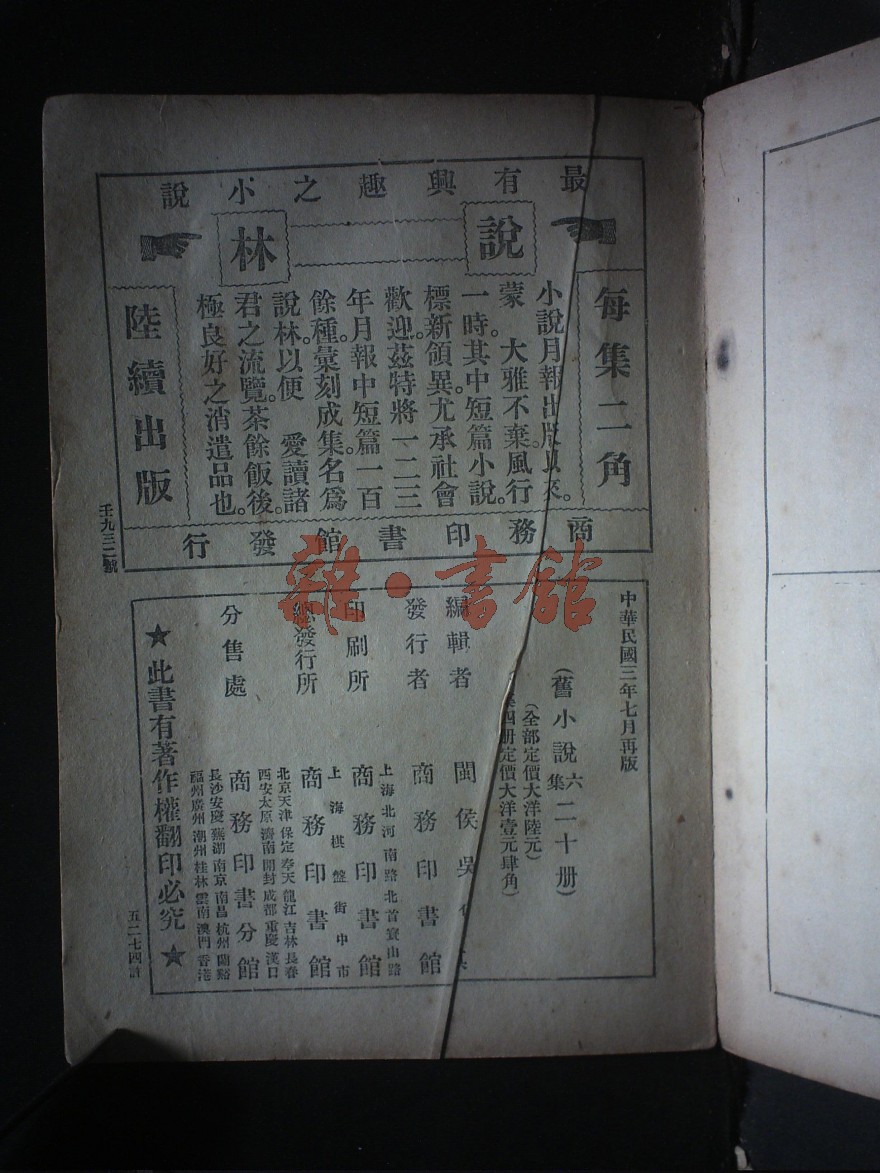 最有興趣之小說
說林
每集二角
小說月報出版以來。
蒙　大雅不棄風行
一時。其中短篇小說。
標新領異。尤承社會
歡迎。茲特將一二三
年月報中短篇一百
餘種。彙刻成集。名爲
說林。以便　愛讀諸
君之流覽。茶餘飯後。
極良好之消遣品也。
陸續出版
商務印書館發行
壬九三二號
雜·書館
中華民國三年七月再版
（舊小說六集二十册）
（全部定價大洋陸元）
四册定價大洋壹元肆角）
編輯者　閩侯吳
發行者　商務印書館
上海北河南路北首寶山路
印刷所　商務印書館
上海棋盤街中市
總發行所　商務印書館
北京天津保定奉天龍江吉林長春
西安太原濟南開封成都重慶漢口
分售處　商務印書分館
長沙安慶蕪湖南京南昌杭州蘭谿
福州廣州潮州桂林雲南澳門香港
★此書有著作權翻印必究★
五二七四